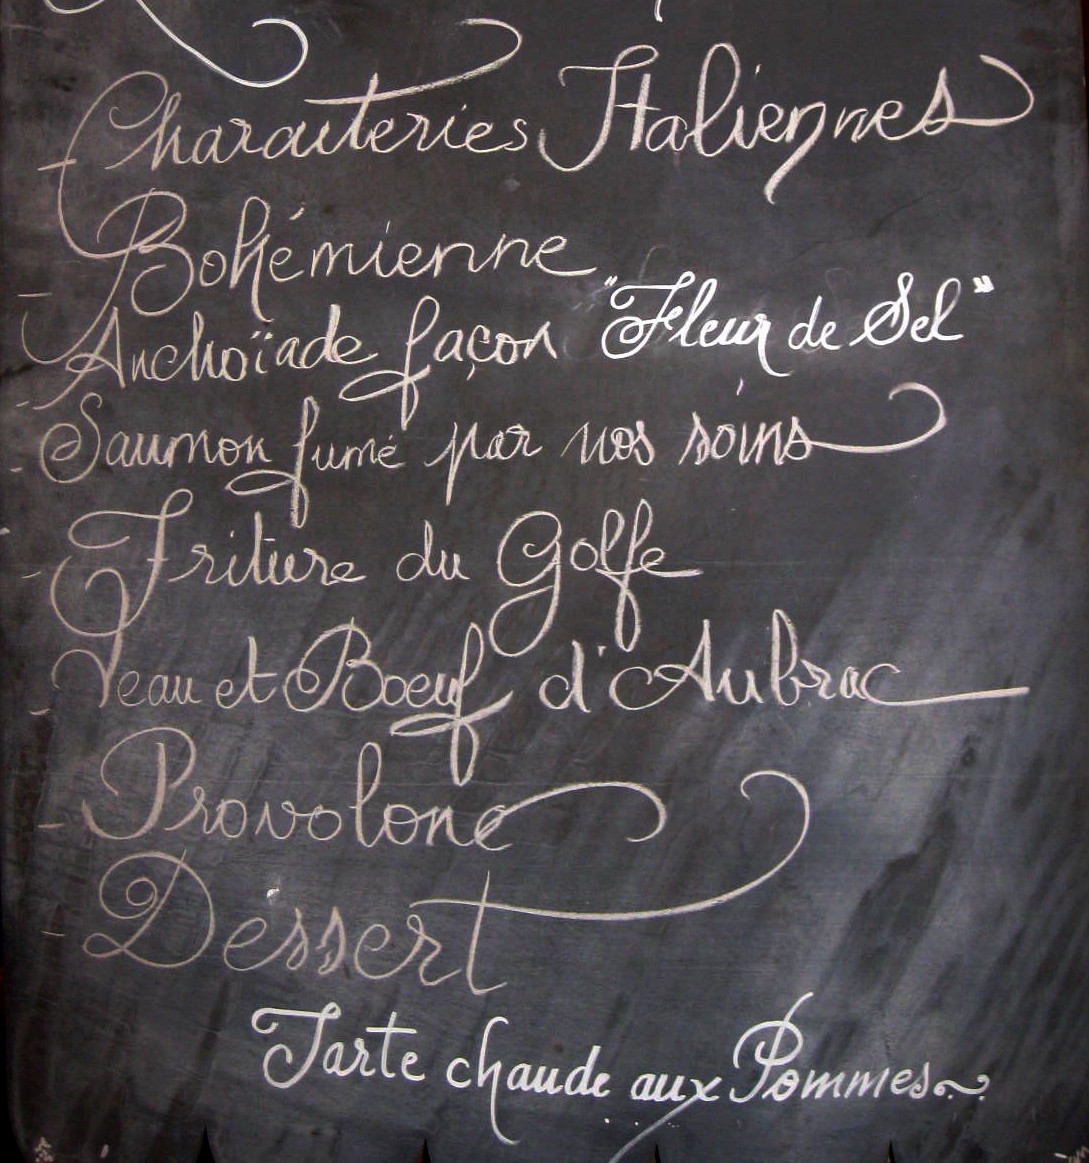 - Charcuteries Italiennes
- Bohémienne
- Anchoïade façon "Fleur de Sel"
- Saumon fumé par nos soins
- Friture du Golfe
- Veau et Boeuf d'Aubrac
- Provolone
- Dessert
Tarte chaude aux Pommes